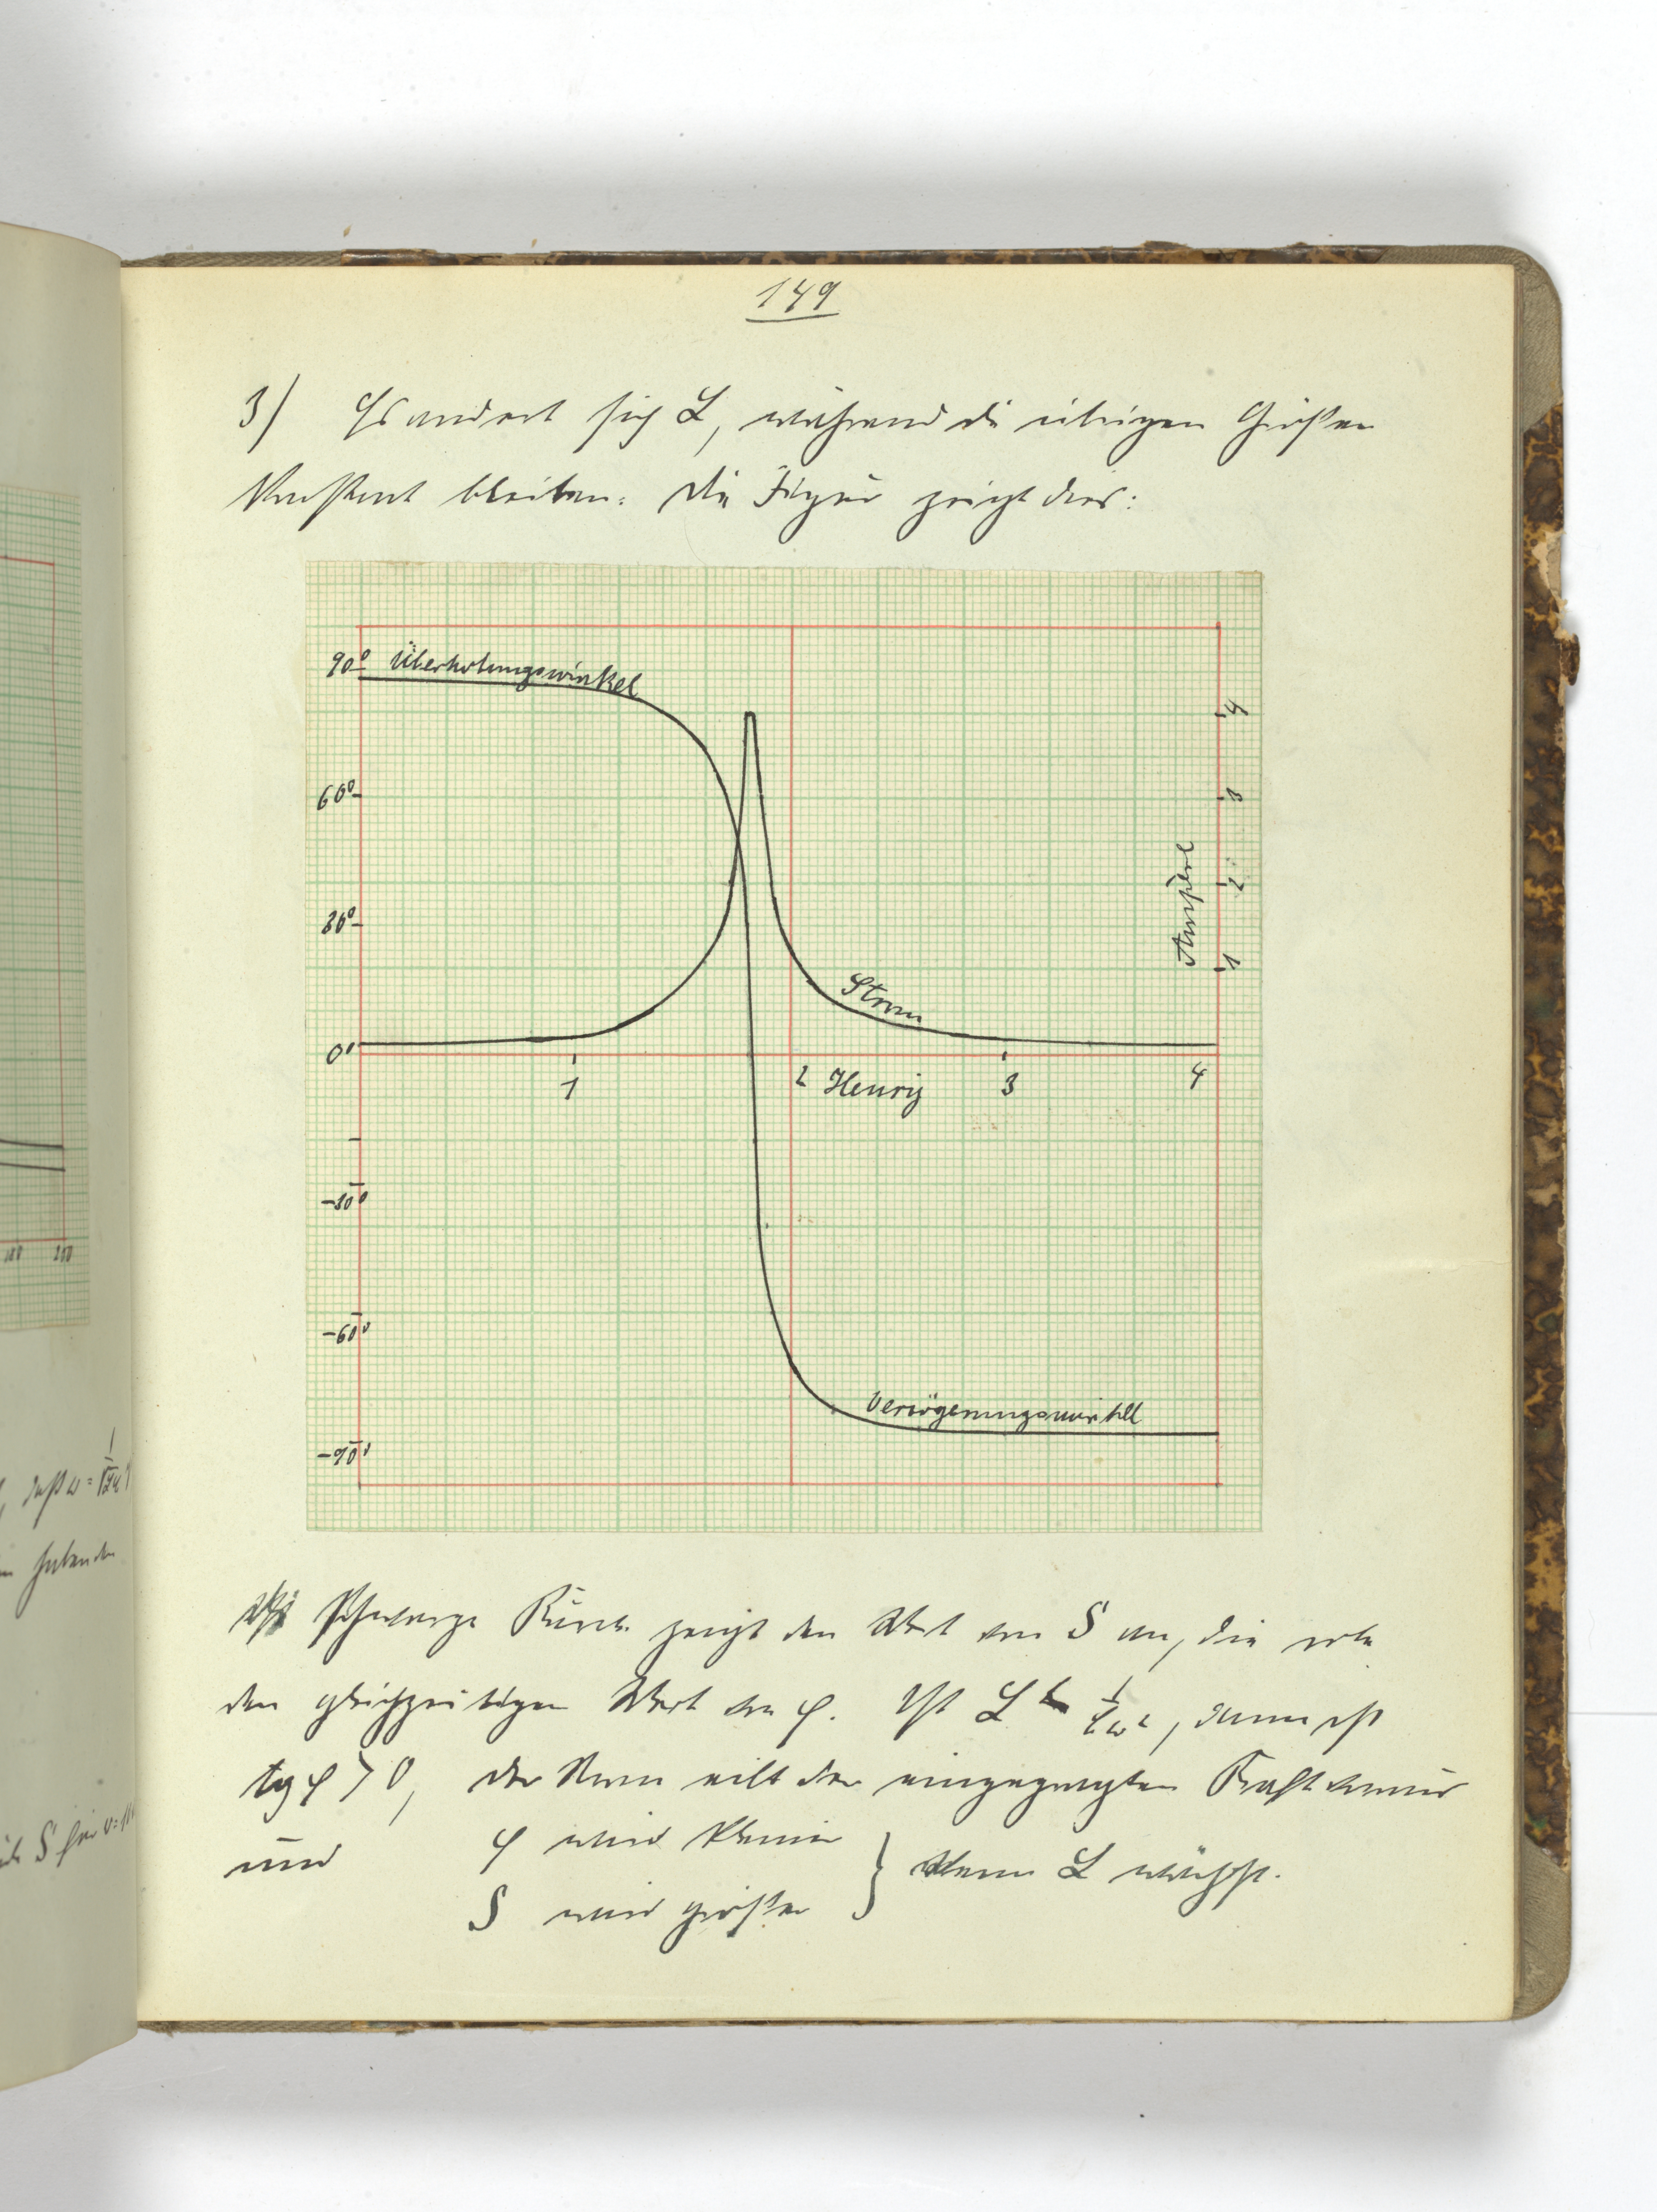 149
3) Es ändert sich L, während die übrigen Größen
konstant bleiben. Die Figur zeigt dies:
90° Überholungswinkel
4
60°
3
Ampère
2
30°
1
Strom
0°
1
2 Henry
3
4
-30°
-60°
Verzögerungswinkel
-90°
Die schwarze Kurve zeigt den Wert von S an, die rote
den gleichzeitigen Wert von φ. Ist L < 1/ω², dann ist
tg φ > 0, der Strom eilt der eingeprägten Kraft voraus
und φ wird kleiner
S wird größer } wenn L wächst.
100 200
, daß ω =
S für